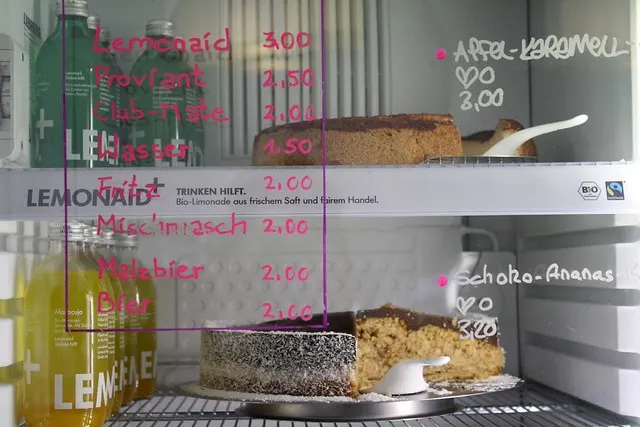 Lemonaid 3,00
Proviant 2,50
Club-Mate 2,00
Wasser 1,50
Fritz 2,00
Misc'mrasch 2,00
Malzbier 2,00
Bier 2,00
APFEL-KARAMELL-
3,00
LEMONAID+ TRINKEN HILFT.
Bio-Limonade aus frischem Saft und fairem Handel.
BIO
FAIRTRADE
SCHOKO-Ananas-
3,20
+ LEM
Maracuja
+ LEM